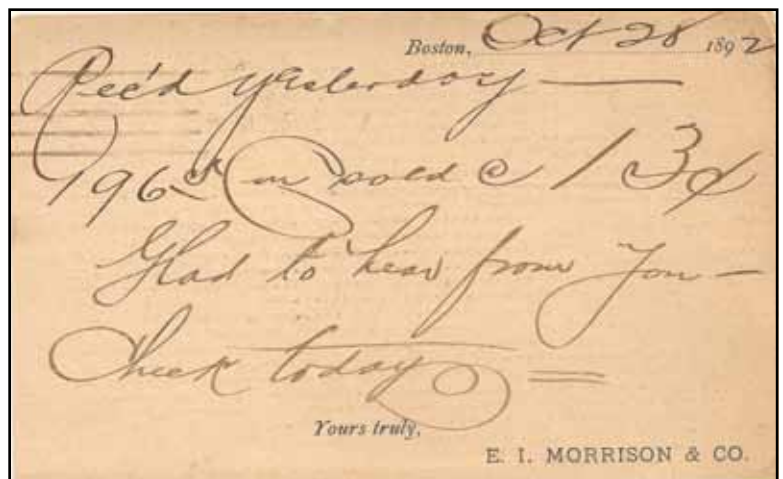 Boston, Oct 28 1892
Rec'd yesterday —
196 sold @ 13¢
Glad to hear from you —
Check today =
Yours truly,
E. I. MORRISON & CO.